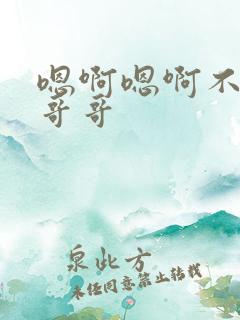 嗯啊嗯啊不
哥哥
泉此方
未经同意禁止转载